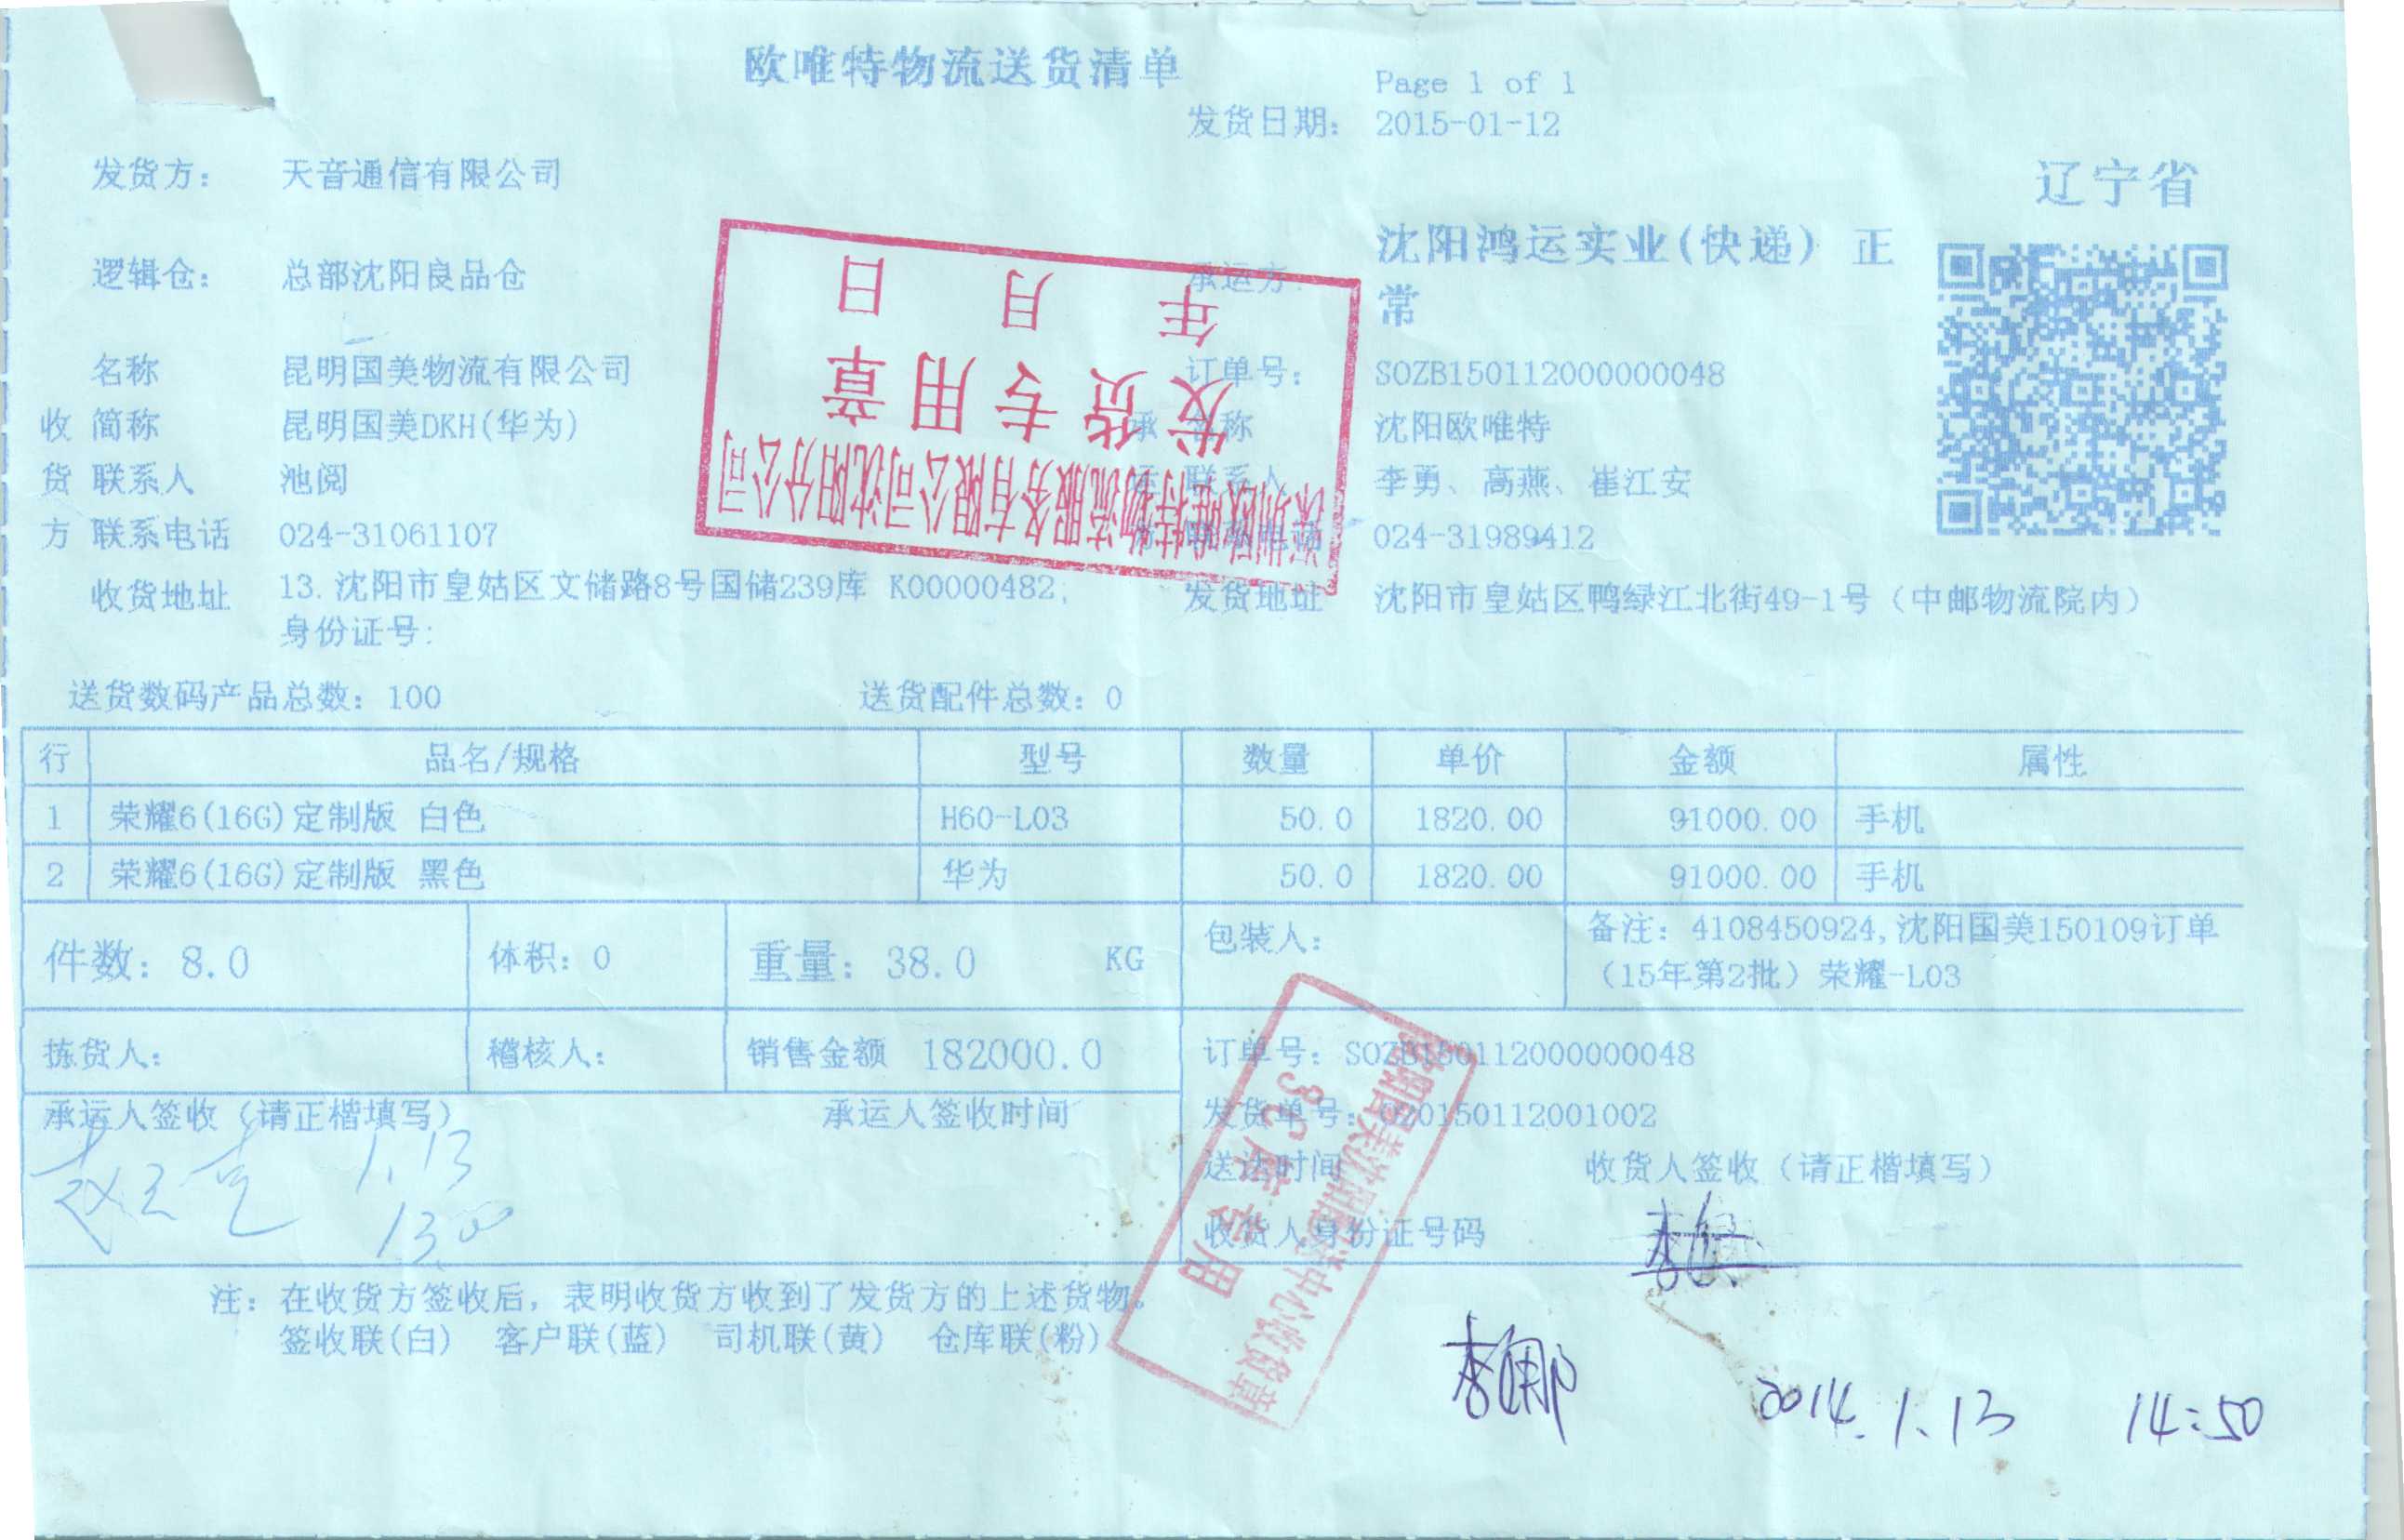 欧唯特物流送货清单
Page 1 of 1
发货日期: 2015-01-12
发货方: 天音通信有限公司
辽宁省
逻辑仓: 总部沈阳良品仓
承运方: 沈阳鸿运实业(快递) 正常
名称 昆明国美物流有限公司
订单号: SOZB150112000000048
收 简称 昆明国美DKH(华为)
承 名称 沈阳欧唯特
货 联系人 池阅
联系人 李勇、高燕、崔江安
方 联系电话 024-31061107
联系电话 024-31989412
收货地址 13.沈阳市皇姑区文储路8号国储239库 K00000482;
身份证号:
发货地址 沈阳市皇姑区鸭绿江北街49-1号(中邮物流院内)
深圳欧唯特物流服务有限公司沈阳分公司
发货专用章
年 月 日
送货数码产品总数: 100 送货配件总数: 0
行 品名/规格 型号 数量 单价 金额 属性
1 荣耀6(16G)定制版 白色 H60-L03 50.0 1820.00 91000.00 手机
2 荣耀6(16G)定制版 黑色 华为 50.0 1820.00 91000.00 手机
件数: 8.0 体积: 0 重量: 38.0 KG 包装人:
备注: 4108450924,沈阳国美150109订单
(15年第2批)荣耀-L03
拣货人: 稽核人: 销售金额 182000.0 订单号: SOZB150112000000048
承运人签收(请正楷填写) 承运人签收时间
发货单号: 020150112001002
送达时间 收货人签收(请正楷填写)
1.13
1300
收货人身份证号码
3C库专用
注: 在收货方签收后, 表明收货方收到了发货方的上述货物。
签收联(白) 客户联(蓝) 司机联(黄) 仓库联(粉)
李娜 2014.1.13 14:50